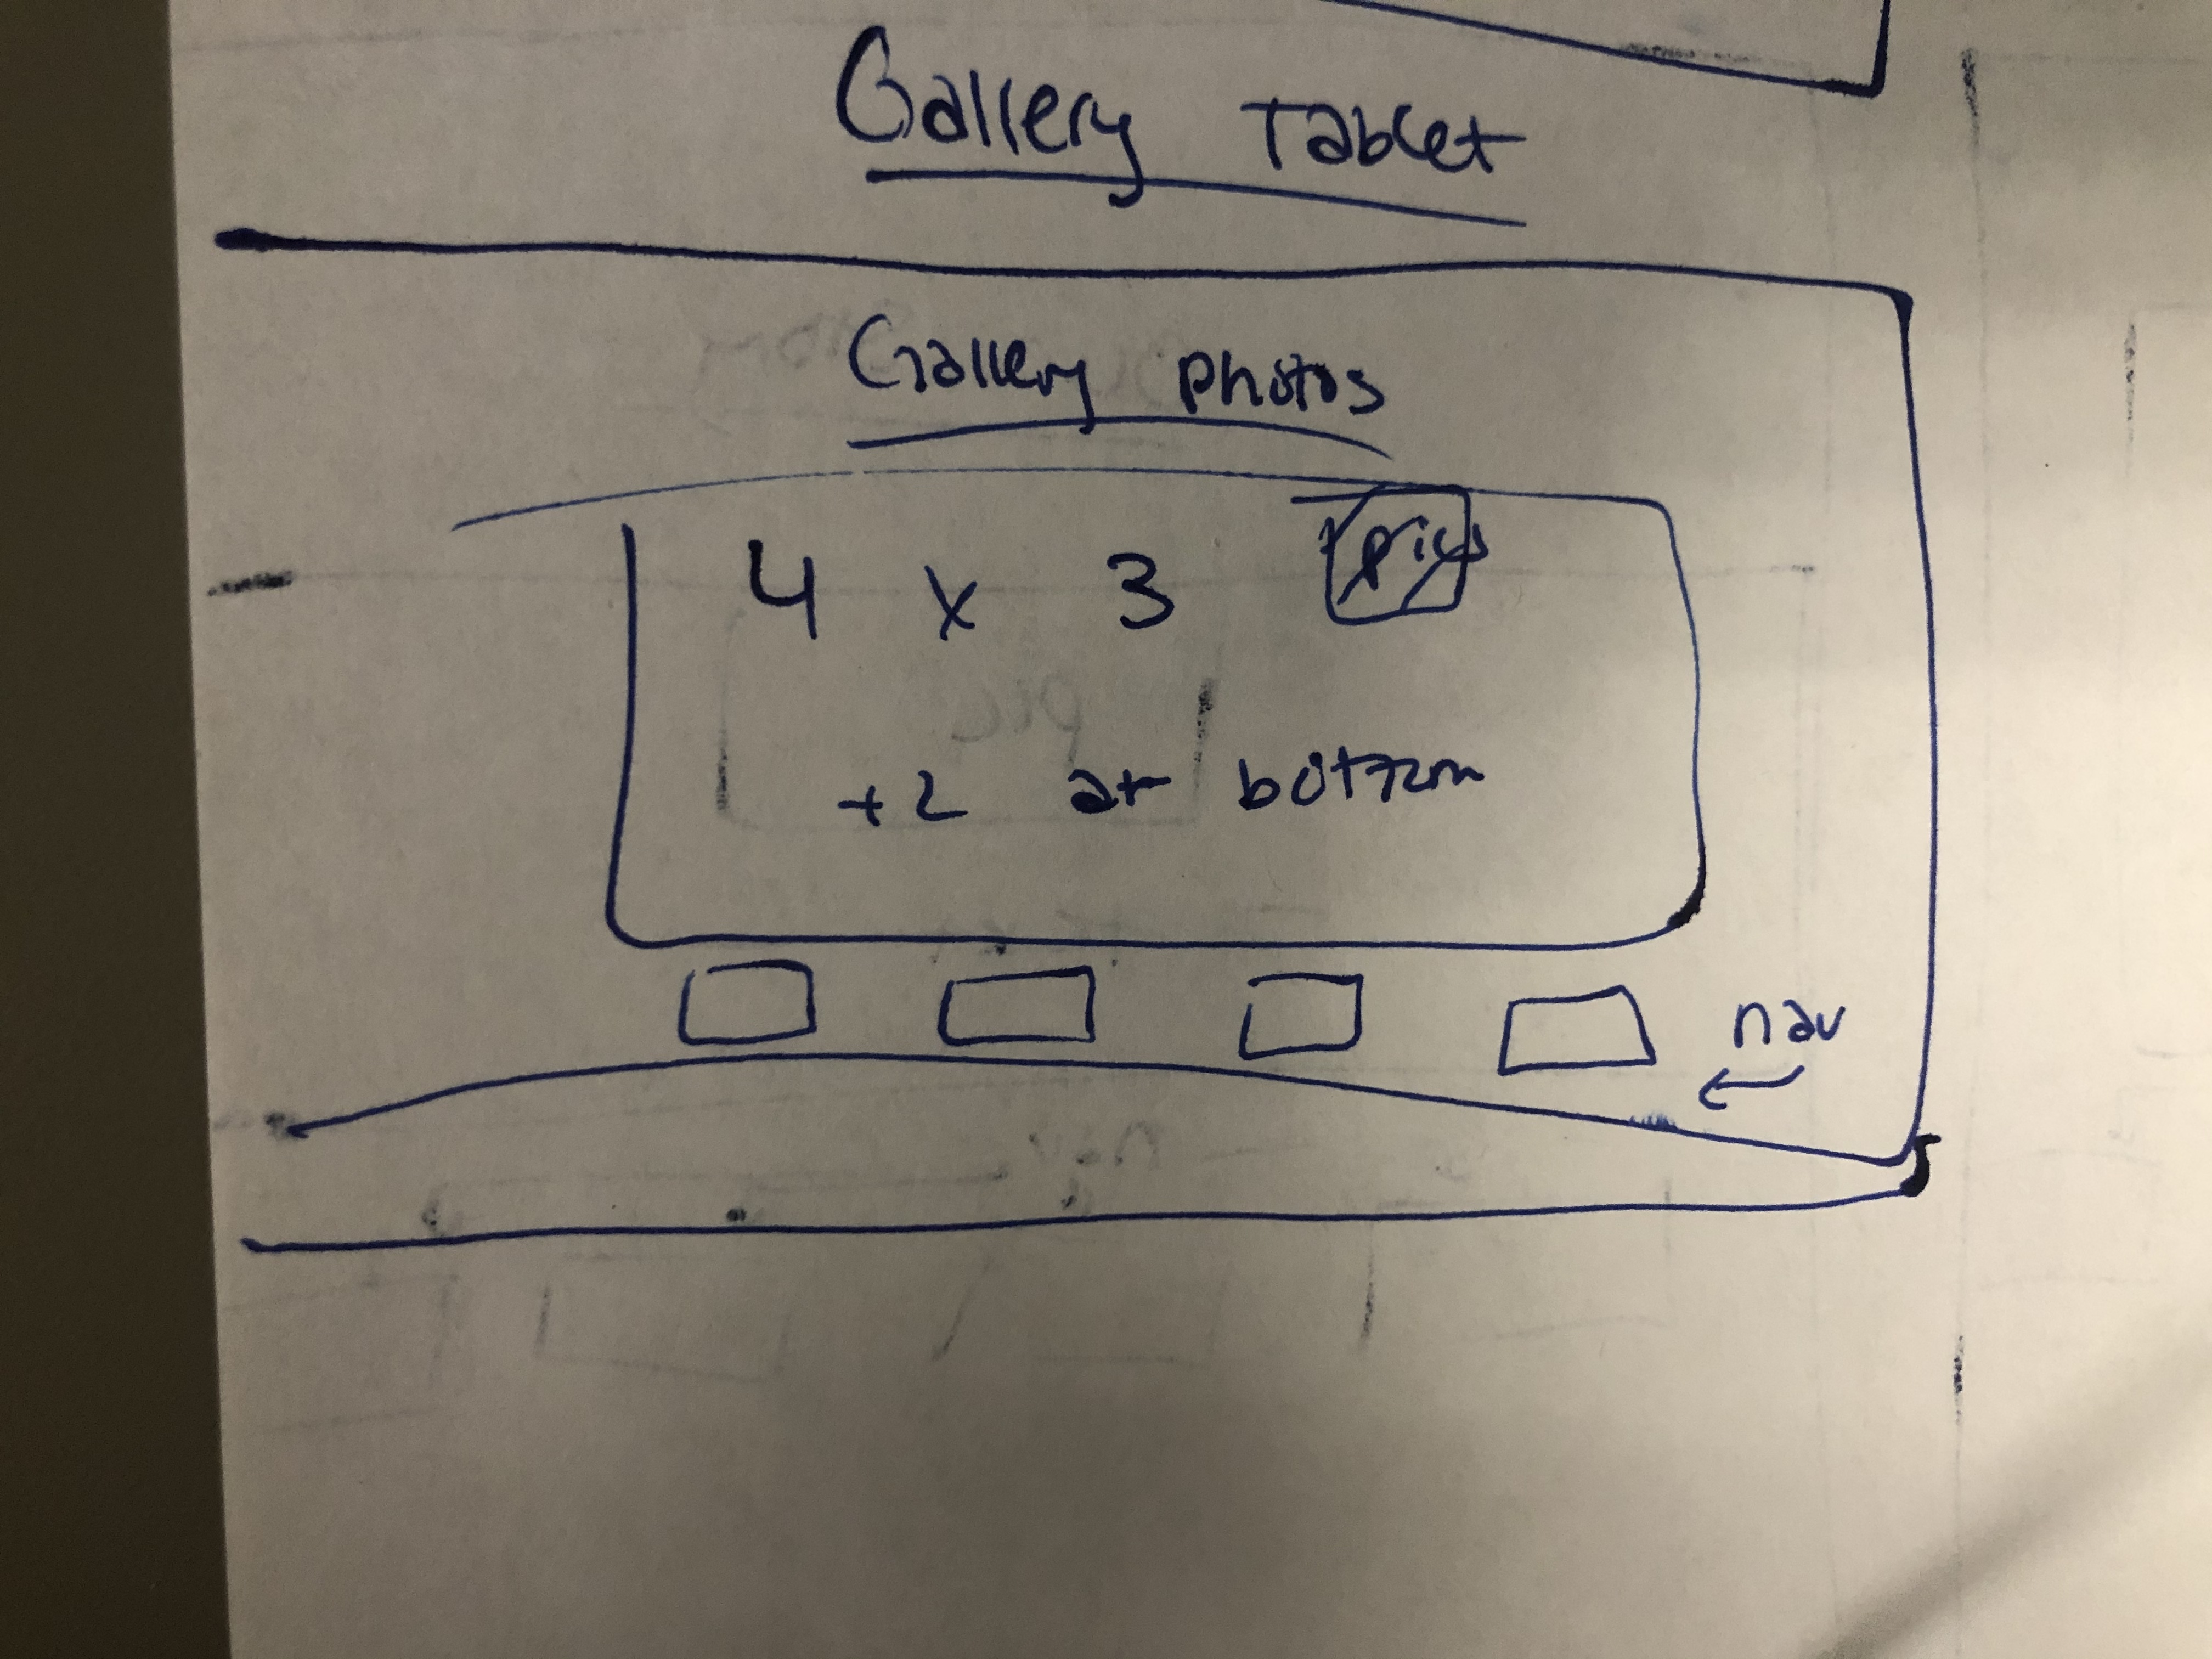 Gallery Tablet
Gallery photos
4 x 3 pics
+2 at bottom
nav